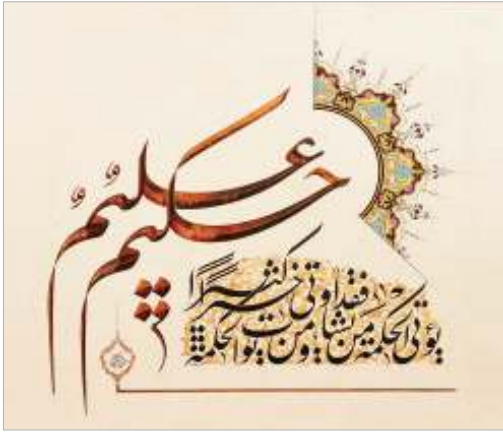 عليمٌ
حكيمٌ
يؤتى الحكمة من يشا ومن يوت الحكمة
فقد اوتى خيراً كثيراً